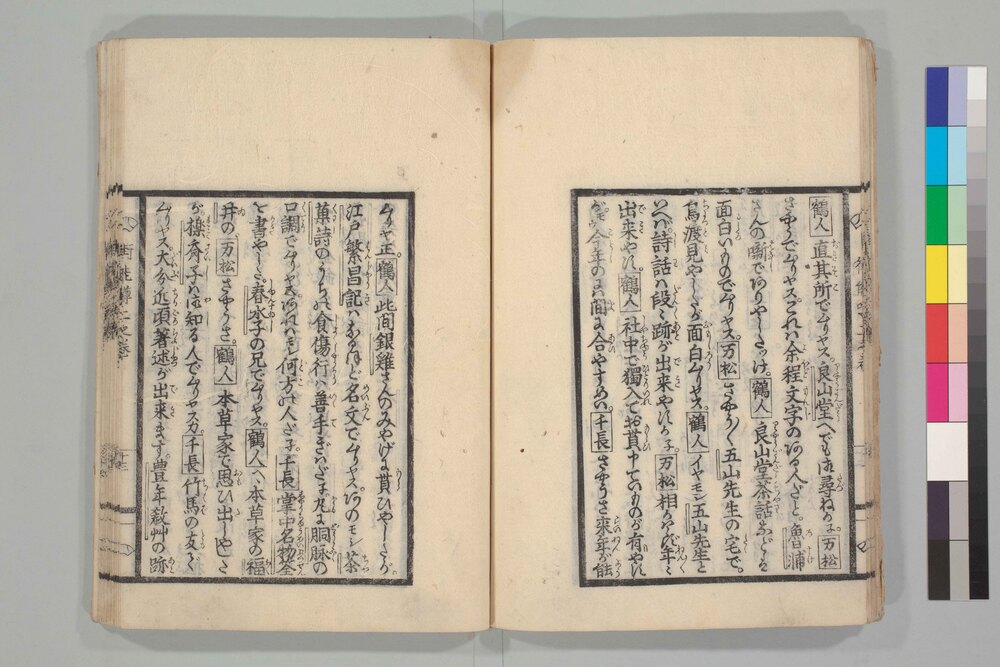 鶴人 直其所でムりヤス。良山堂へでも御尋ねか。万松
さやうでムりヤス。これハ余程文字のある人だと。魯浦
さんの噺でありやしたッけ。鶴人 良山堂茶話
面白いものでムりヤス。万松 さやう〳〵五山先生の宅で。
鳥渡見やしたが面白うムりヤス。鶴人 イヤモシ五山先生と
いへバ詩話ハ段々跡が出来やすか子。万松 相かハらず年々
出来やす。鶴人 社中で獨入でお貰申ていものが有やす
が今年の間に合やすめへ。千長 さやうさ来年が能
ムりやせ正。鶴人 此間銀雞さんのみやげに貰ひやしたが。
江戸繁昌記ハなるほど名文でムりヤス。あのモシ茶
菓詩のうちの食傷行ハ善手ぎハだ子。九に胴脉の
口調でムりやす。あれハモシ何方の人だ子。千長 掌中名物筌
を書やした春水子の兄でムりヤス。鶴人 ヘヽ本草家の福
井の 万松 さやうさ。鶴人 本草家で思ひ出しやした
が樸斎子ハ御知る人でムりヤスカ 千長 竹馬の友で
ムりヤス。大分近頃著述が出来ます。豊年教艸の跡